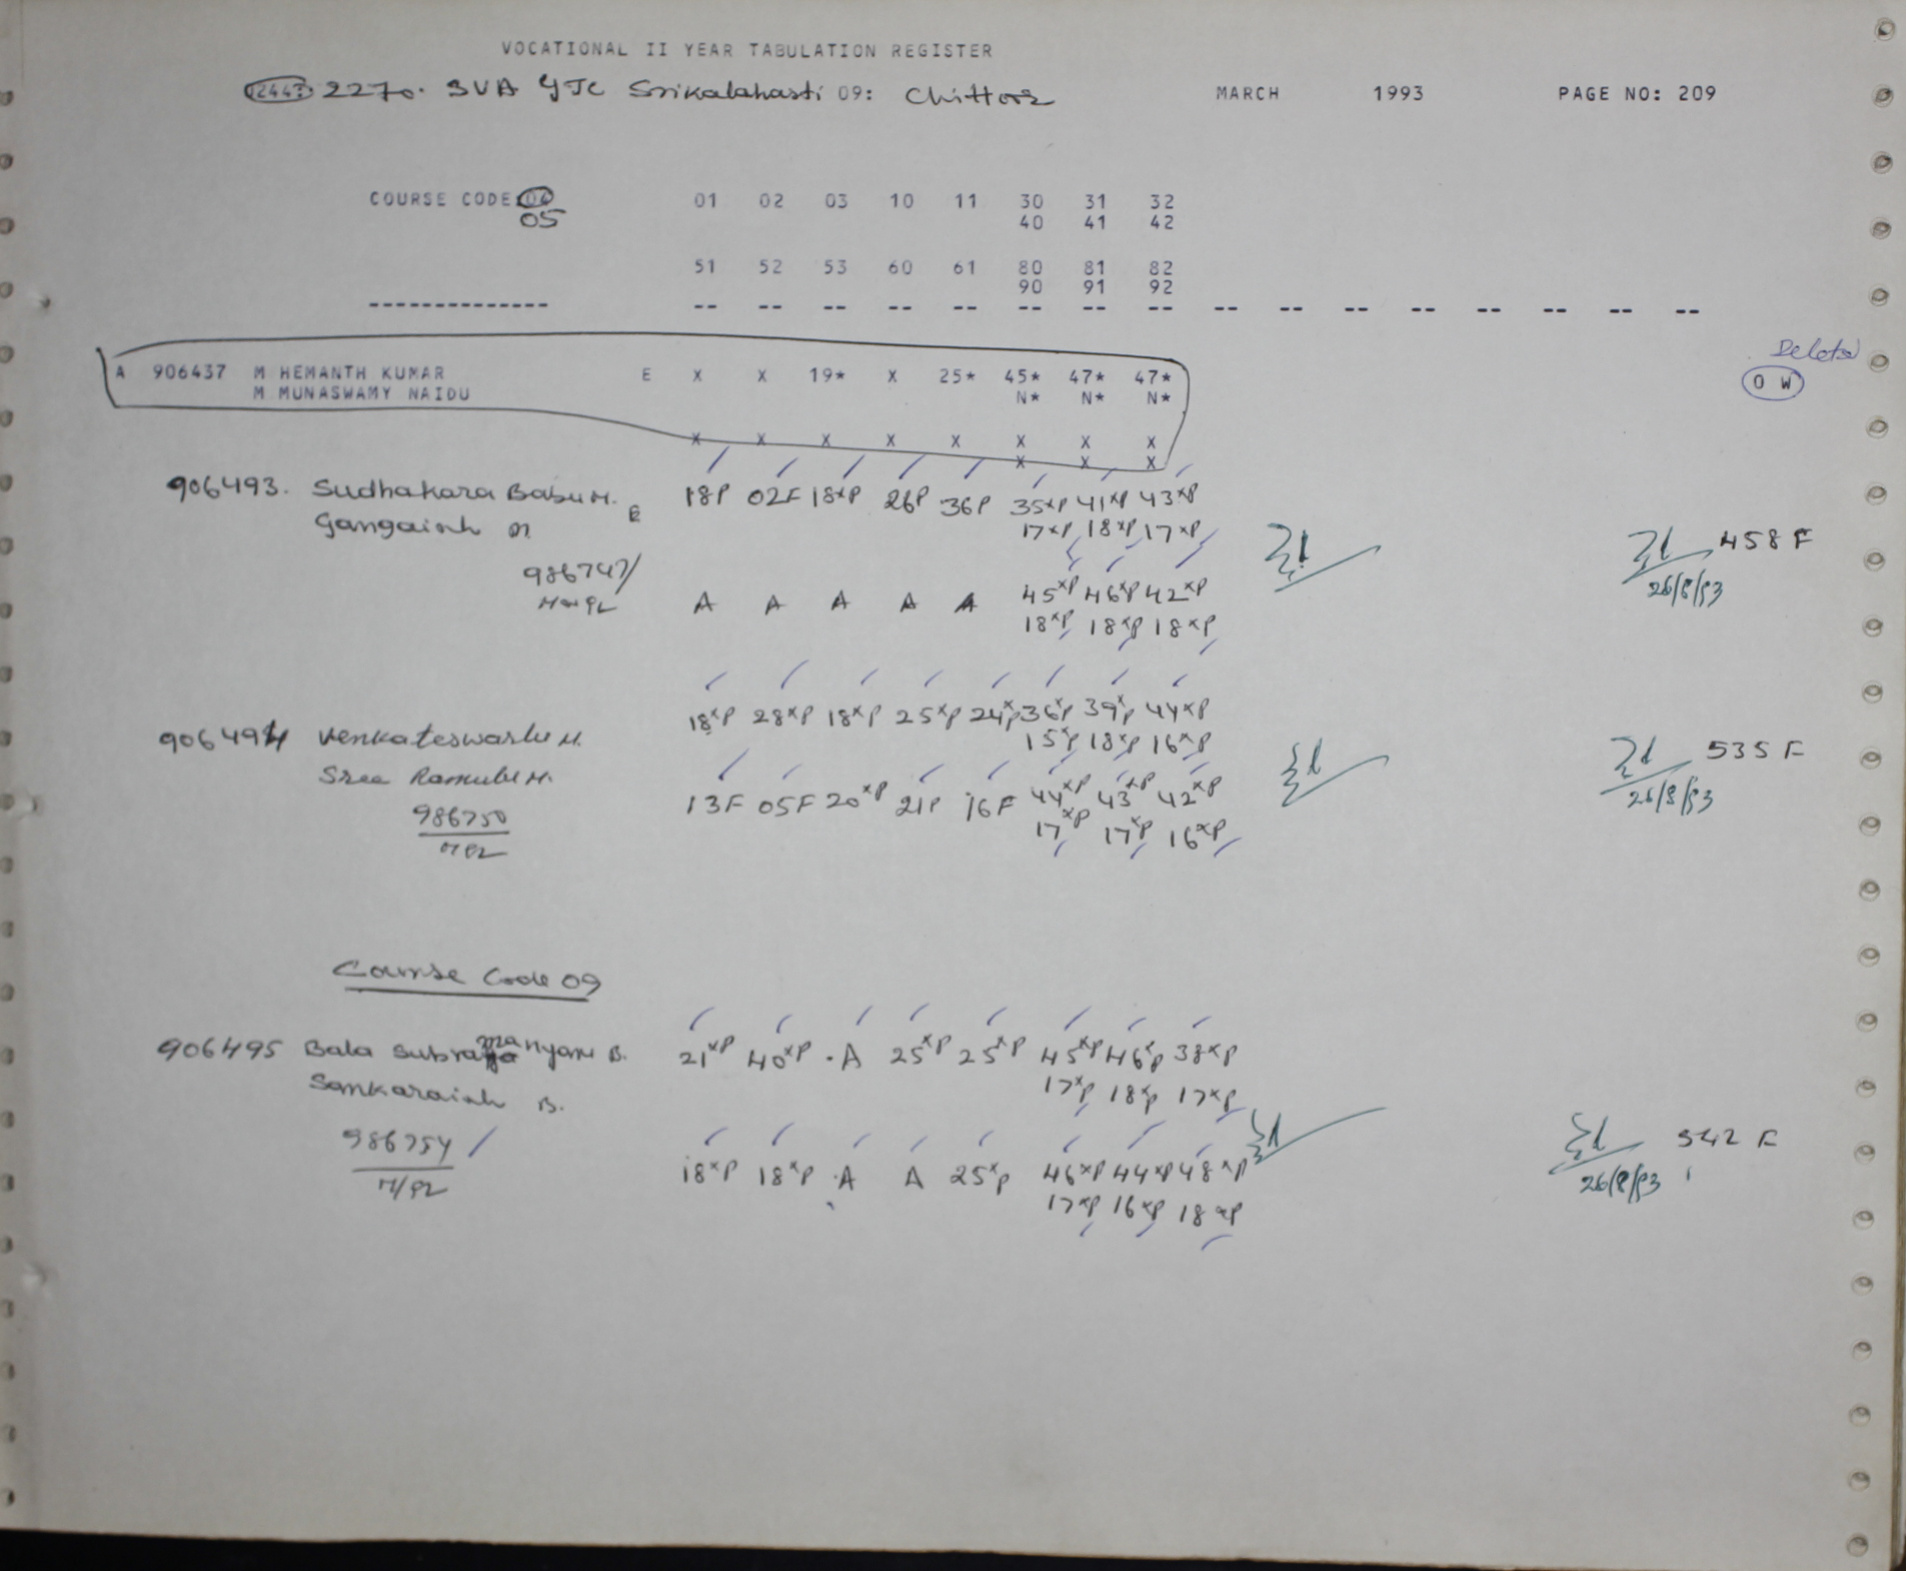 VOCATIONAL II YEAR TABULATION REGISTER
2447 2270. SVA GJC Srikalahasti 09: Chittoor MARCH 1993 PAGE NO: 209
COURSE CODE: 01 02 03 10 11 30 31 32
05 40 41 42
51 52 53 60 61 80 81 82
90 91 92
-------------- -- -- -- -- -- -- -- -- -- -- -- -- -- -- -- --
Delete
A 906437 M HEMANTH KUMAR E X X 19* X 25* 45* 47* 47* O W
M MUNASWAMY NAIDU N* N* N*
X X X X X X X X
X X X
906493. Sudhakara Babu M. E 18P 02F 18xP 26P 36P 35xP 41xP 43xP
Gangaiah M 17xP 18xP 17xP 458 F
986747/ 45xP 46xP 42xP 26/8/93
A A A A A
18xP 18xP 18xP
18xP 28xP 18xP 25xP 24xP 36xP 39xP 44xP
906494 Venkateswarlu M. 15xP 18xP 16xP 535 F
Sree Ramulu M. 13F 05F 20xP 21P 16F 44xP 43xP 42xP 26/8/93
986750 17xP 17xP 16xP
Course Code 09
906495 Bala Subramanyam B. 21xP 40xP A 25xP 25xP 45xP 46xP 38xP
Sankaraiah B. 17xP 18xP 17xP
986754 / 542 F
M/92 18xP 18xP A A 25xP 46xP 44xP 48xP 26/8/93
17xP 16xP 18xP